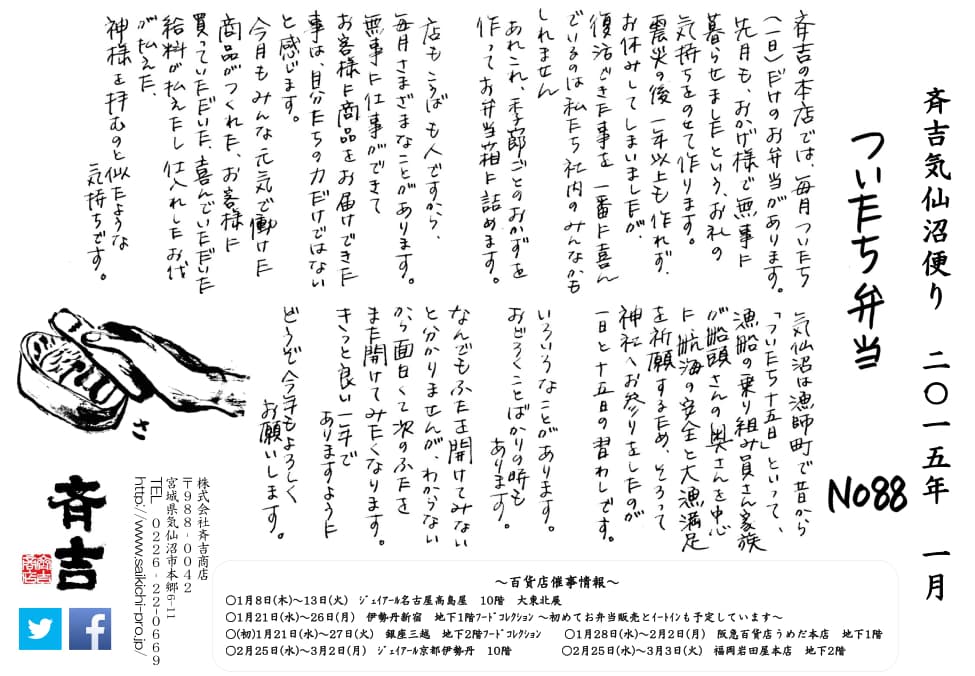 斉吉気仙沼便り　二〇一五年　一月
ついたち弁当
No88
気仙沼は漁師町で昔から
「ついたち十五日」といって、
漁船の乗り組み員さん家族
が船頭さんの奥さんを中心
に航海の安全と大漁満足
を祈願するため、そろって
神社へお参りをしたのが
一日と十五日の習わしです。
斉吉の本店では、毎月ついたち
(一日)だけのお弁当があります。
先月も、おかげ様で無事に
暮らせましたという、お礼の
気持ちをのせて作ります。
震災の後一年以上も作れず、
お休みしてしまいましたが、
復活できた事を一番に喜ん
でいるのは私たち社内のみんなかも
しれません
あれこれ、季節ごとのおかずを
作ってお弁当箱に詰めます。
店もこうばも人ですから、
毎月さまざまなことがあります。
無事に仕事ができて
お客様に商品をお届けできた
事は、自分たちの力だけではない
と感じます。
今月もみんな元気で働けた
商品がつくれた、お客様に
買っていただいた、喜んでいただいた
給料が払えたし仕入れしたお代
が払えた、
神様を拝むのと似たような
気持ちです。
いろいろなことがあります。
おどろくことばかりの時も
あります。
なんでもふたを開けてみない
と分かりませんが、わからない
から面白くて次のふたを
また開けてみたくなります。
きっと良い一年で
ありますように
どうぞ今年もよろしく
お願いします。
さ
斉吉
株式会社斉吉商店
〒988-0042
宮城県気仙沼市本郷6-11
TEL　0226-22-0669
http://www.saikichi-pro.jp/
～百貨店催事情報～
○1月8日(木)～13日(火)　ジェイアール名古屋高島屋　10階　大東北展
○1月21日(水)～26日(月)　伊勢丹新宿　地下1階フードコレクション ～初めてお弁当販売とイートインも予定しています～
○(初)1月21日(水)～27日(火)　銀座三越　地下2階フードコレクション　　○1月28日(水)～2月2日(月)　阪急百貨店うめだ本店　地下1階
○2月25日(水)～3月2日(月)　ジェイアール京都伊勢丹　10階　　○2月25日(水)～3月3日(火)　福岡岩田屋本店　地下2階